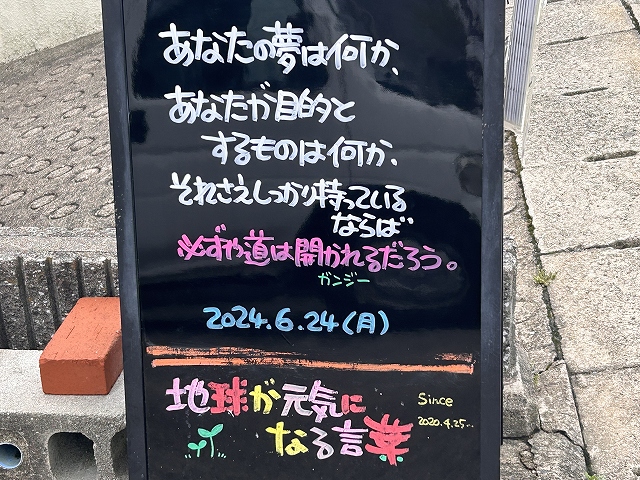 あなたの夢は何か、
あなたが目的と
するものは何か、
それさえしっかり持っている
ならば
必ずや道は開かれるだろう。
ガンジー
2024.6.24(月)
地球が元気に
なる言葉
Since
2020.4.25...